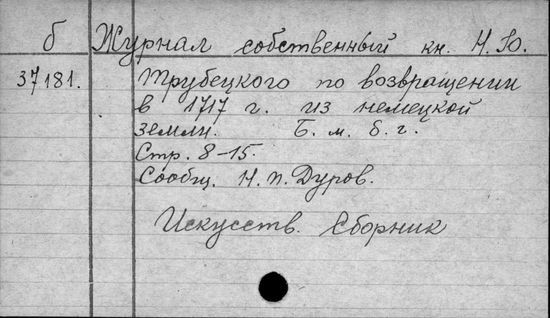 б Журнал собственный кн. Н. Ю.
37181. Трубецкого по возвращении
в 1717 г. из немецкой
земли. Б. м. б. г.
Стр. 8-15.
Сообщ. Н. П. Дуров.
Искусств. Сборник